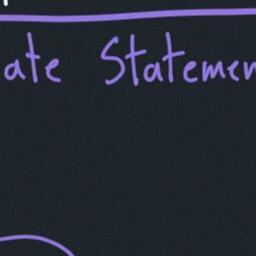 ate Statemen